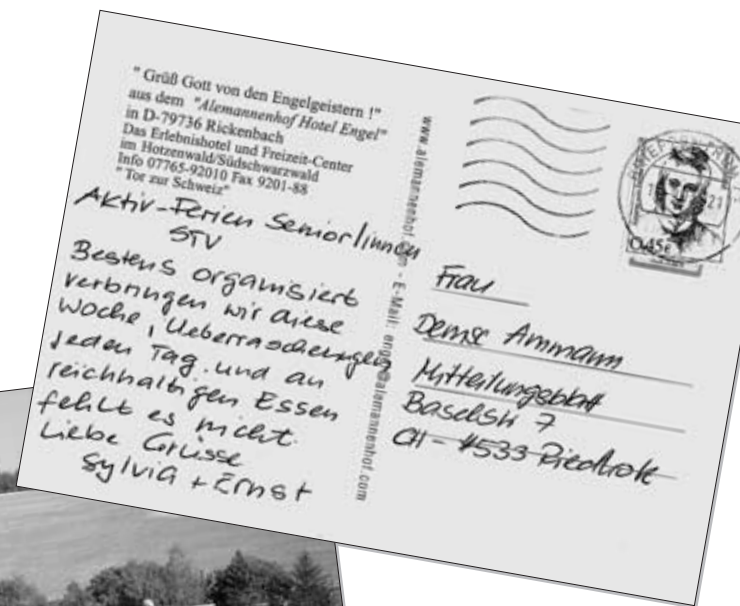 " Grüß Gott von den Engelgeistern !"
aus dem "Alemannenhof Hotel Engel"
in D-79736 Rickenbach
Das Erlebnishotel und Freizeit-Center
im Hotzenwald/Südschwarzwald
Info 07765-92010 Fax 9201-88
"Tor zur Schweiz"
Aktiv-Ferien Senior/innen
STV
Bestens organisiert
verbringen wir diese
Woche, Ueberraschungen
jeden Tag. und an
reichhaltigen Essen
fehlt es nicht.
Liebe Grüsse
Sylvia + Ernst
www.alemannenhof. - E-Mail: engel@alemannenhof.com
0,45€
Frau
Denise Ammann
Mitteilungsblatt
Baselstr 7
CH - 4533 Riedholz